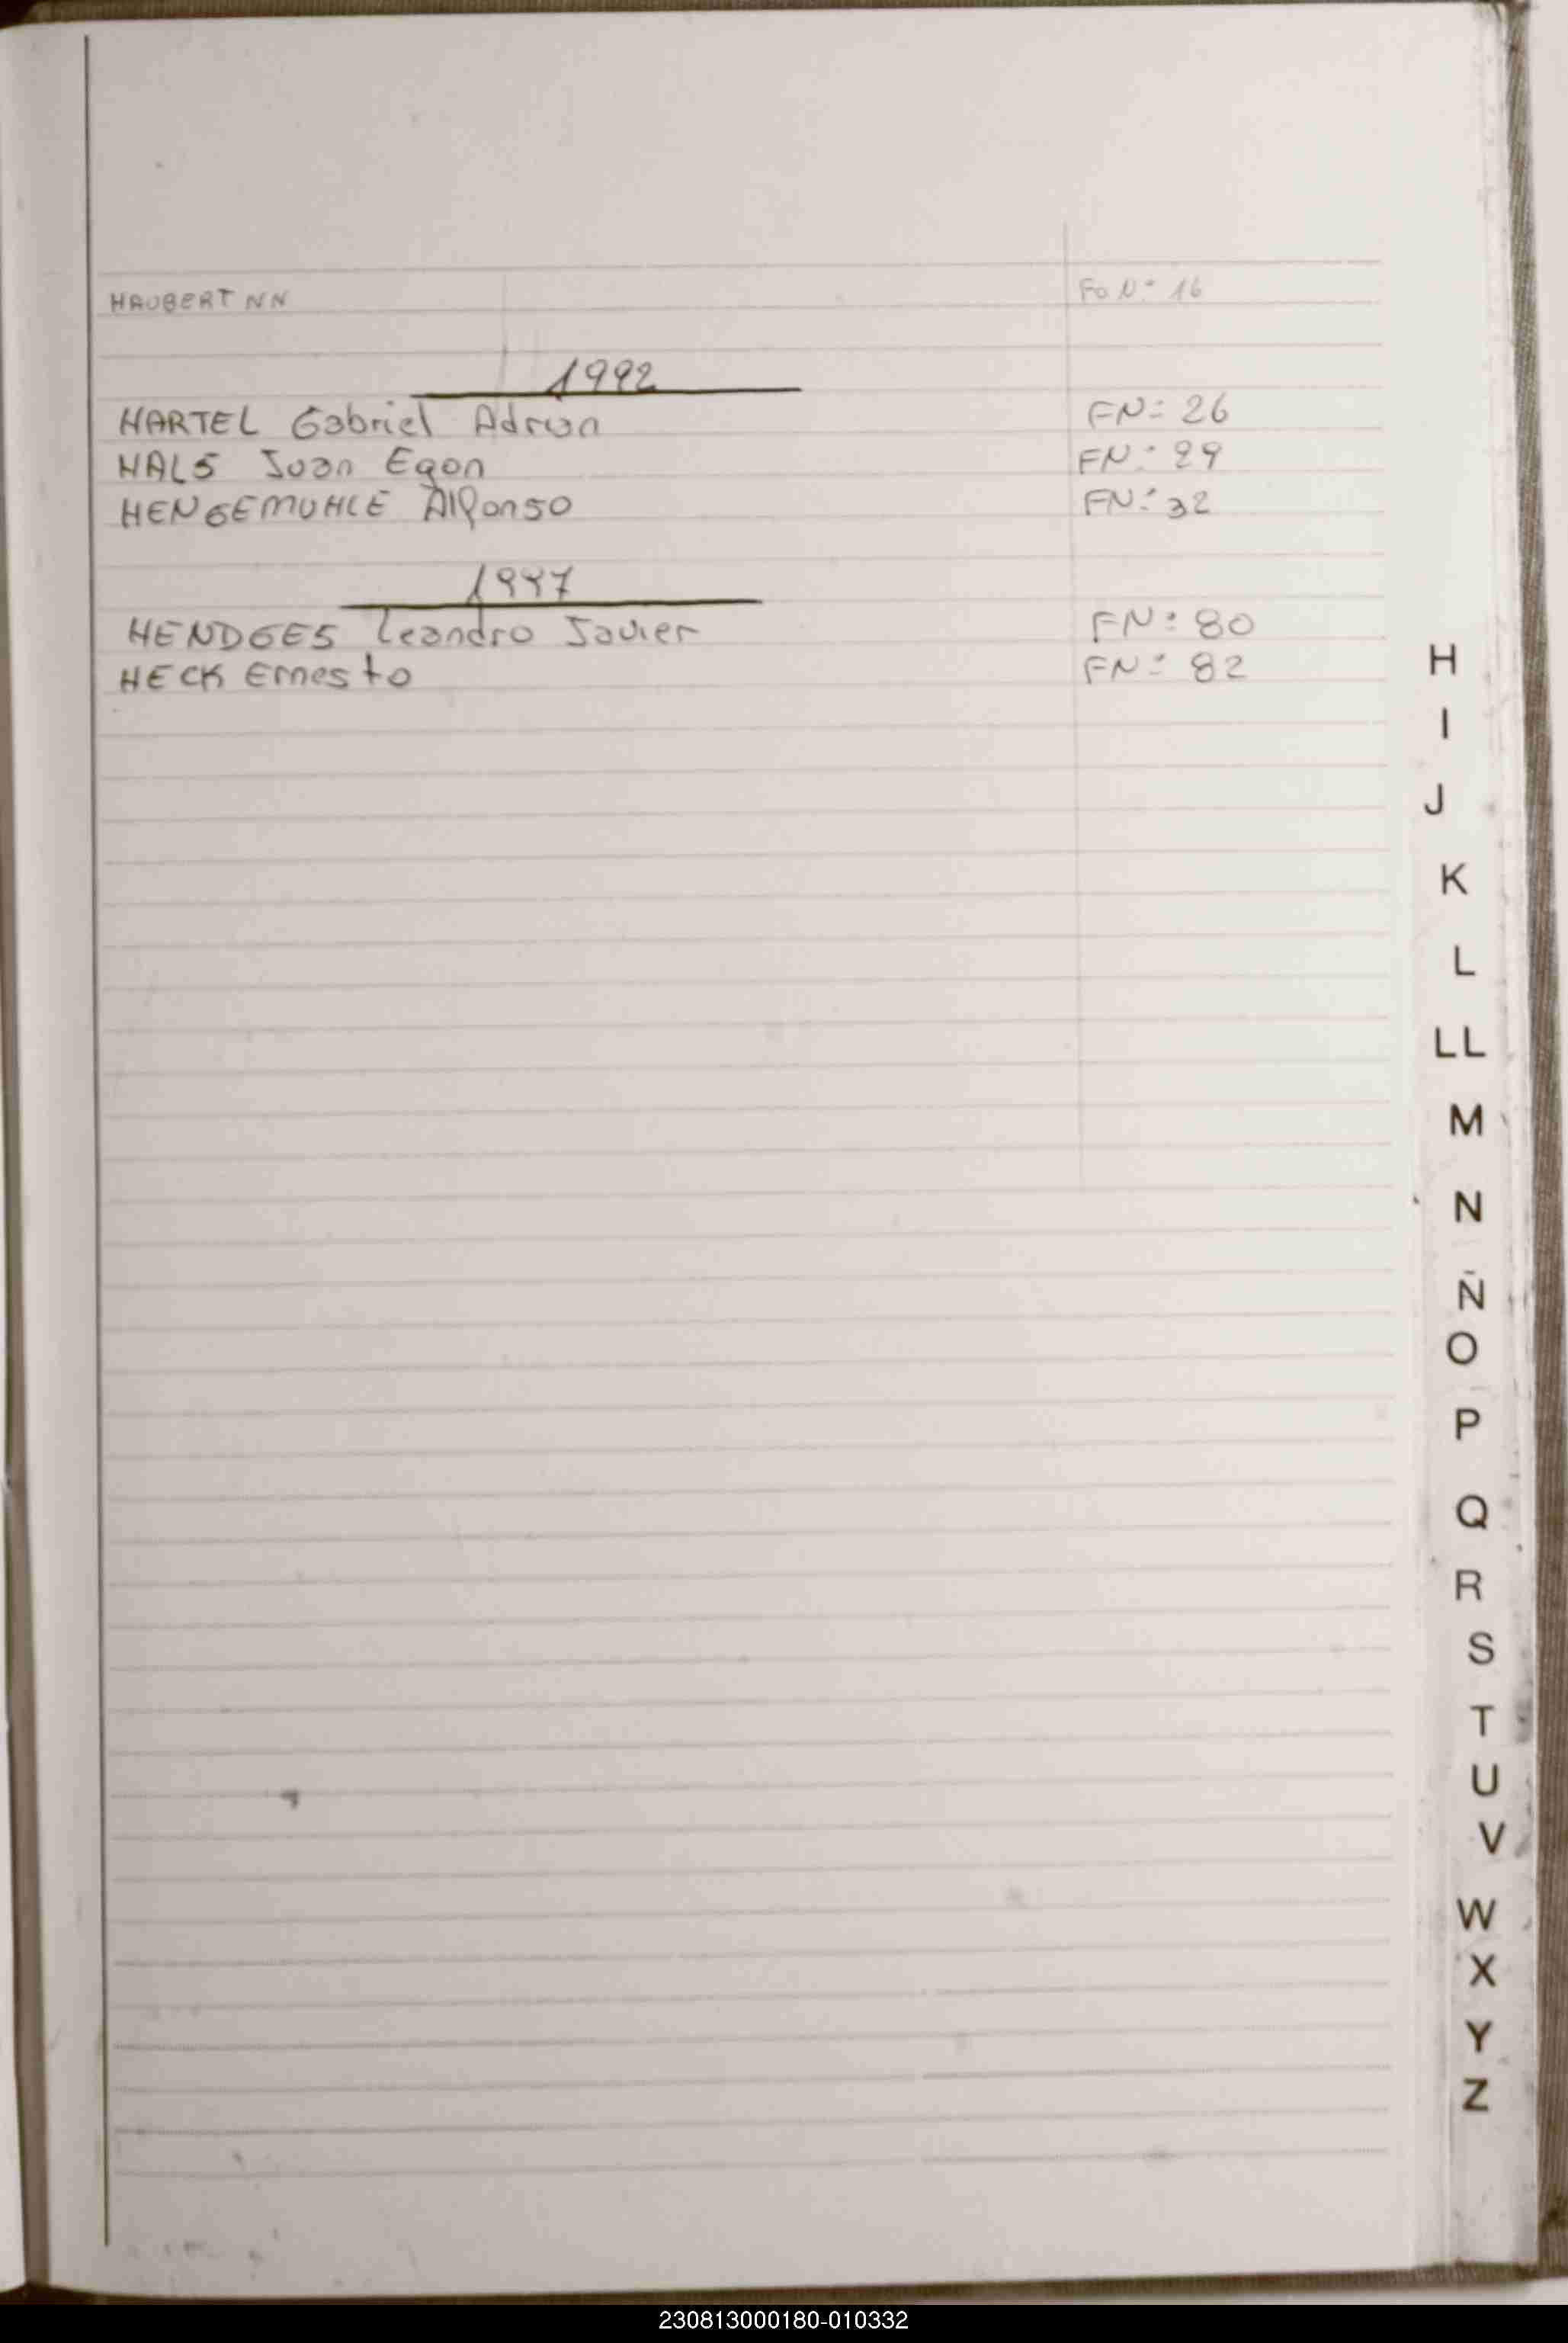 HAUBERT NN Fo Nº 16
1992
HARTEL Gabriel Adrian FNº 26
HALS Juan Egon FNº 29
HENGEMUHLE Alfonso FNº 32
1997
HENDGES Leandro Javier FNº 80
HECK Ernesto FNº 82
H
I
J
K
L
LL
M
N
Ñ
O
P
Q
R
S
T
U
V
W
X
Y
Z
230813000180-010332